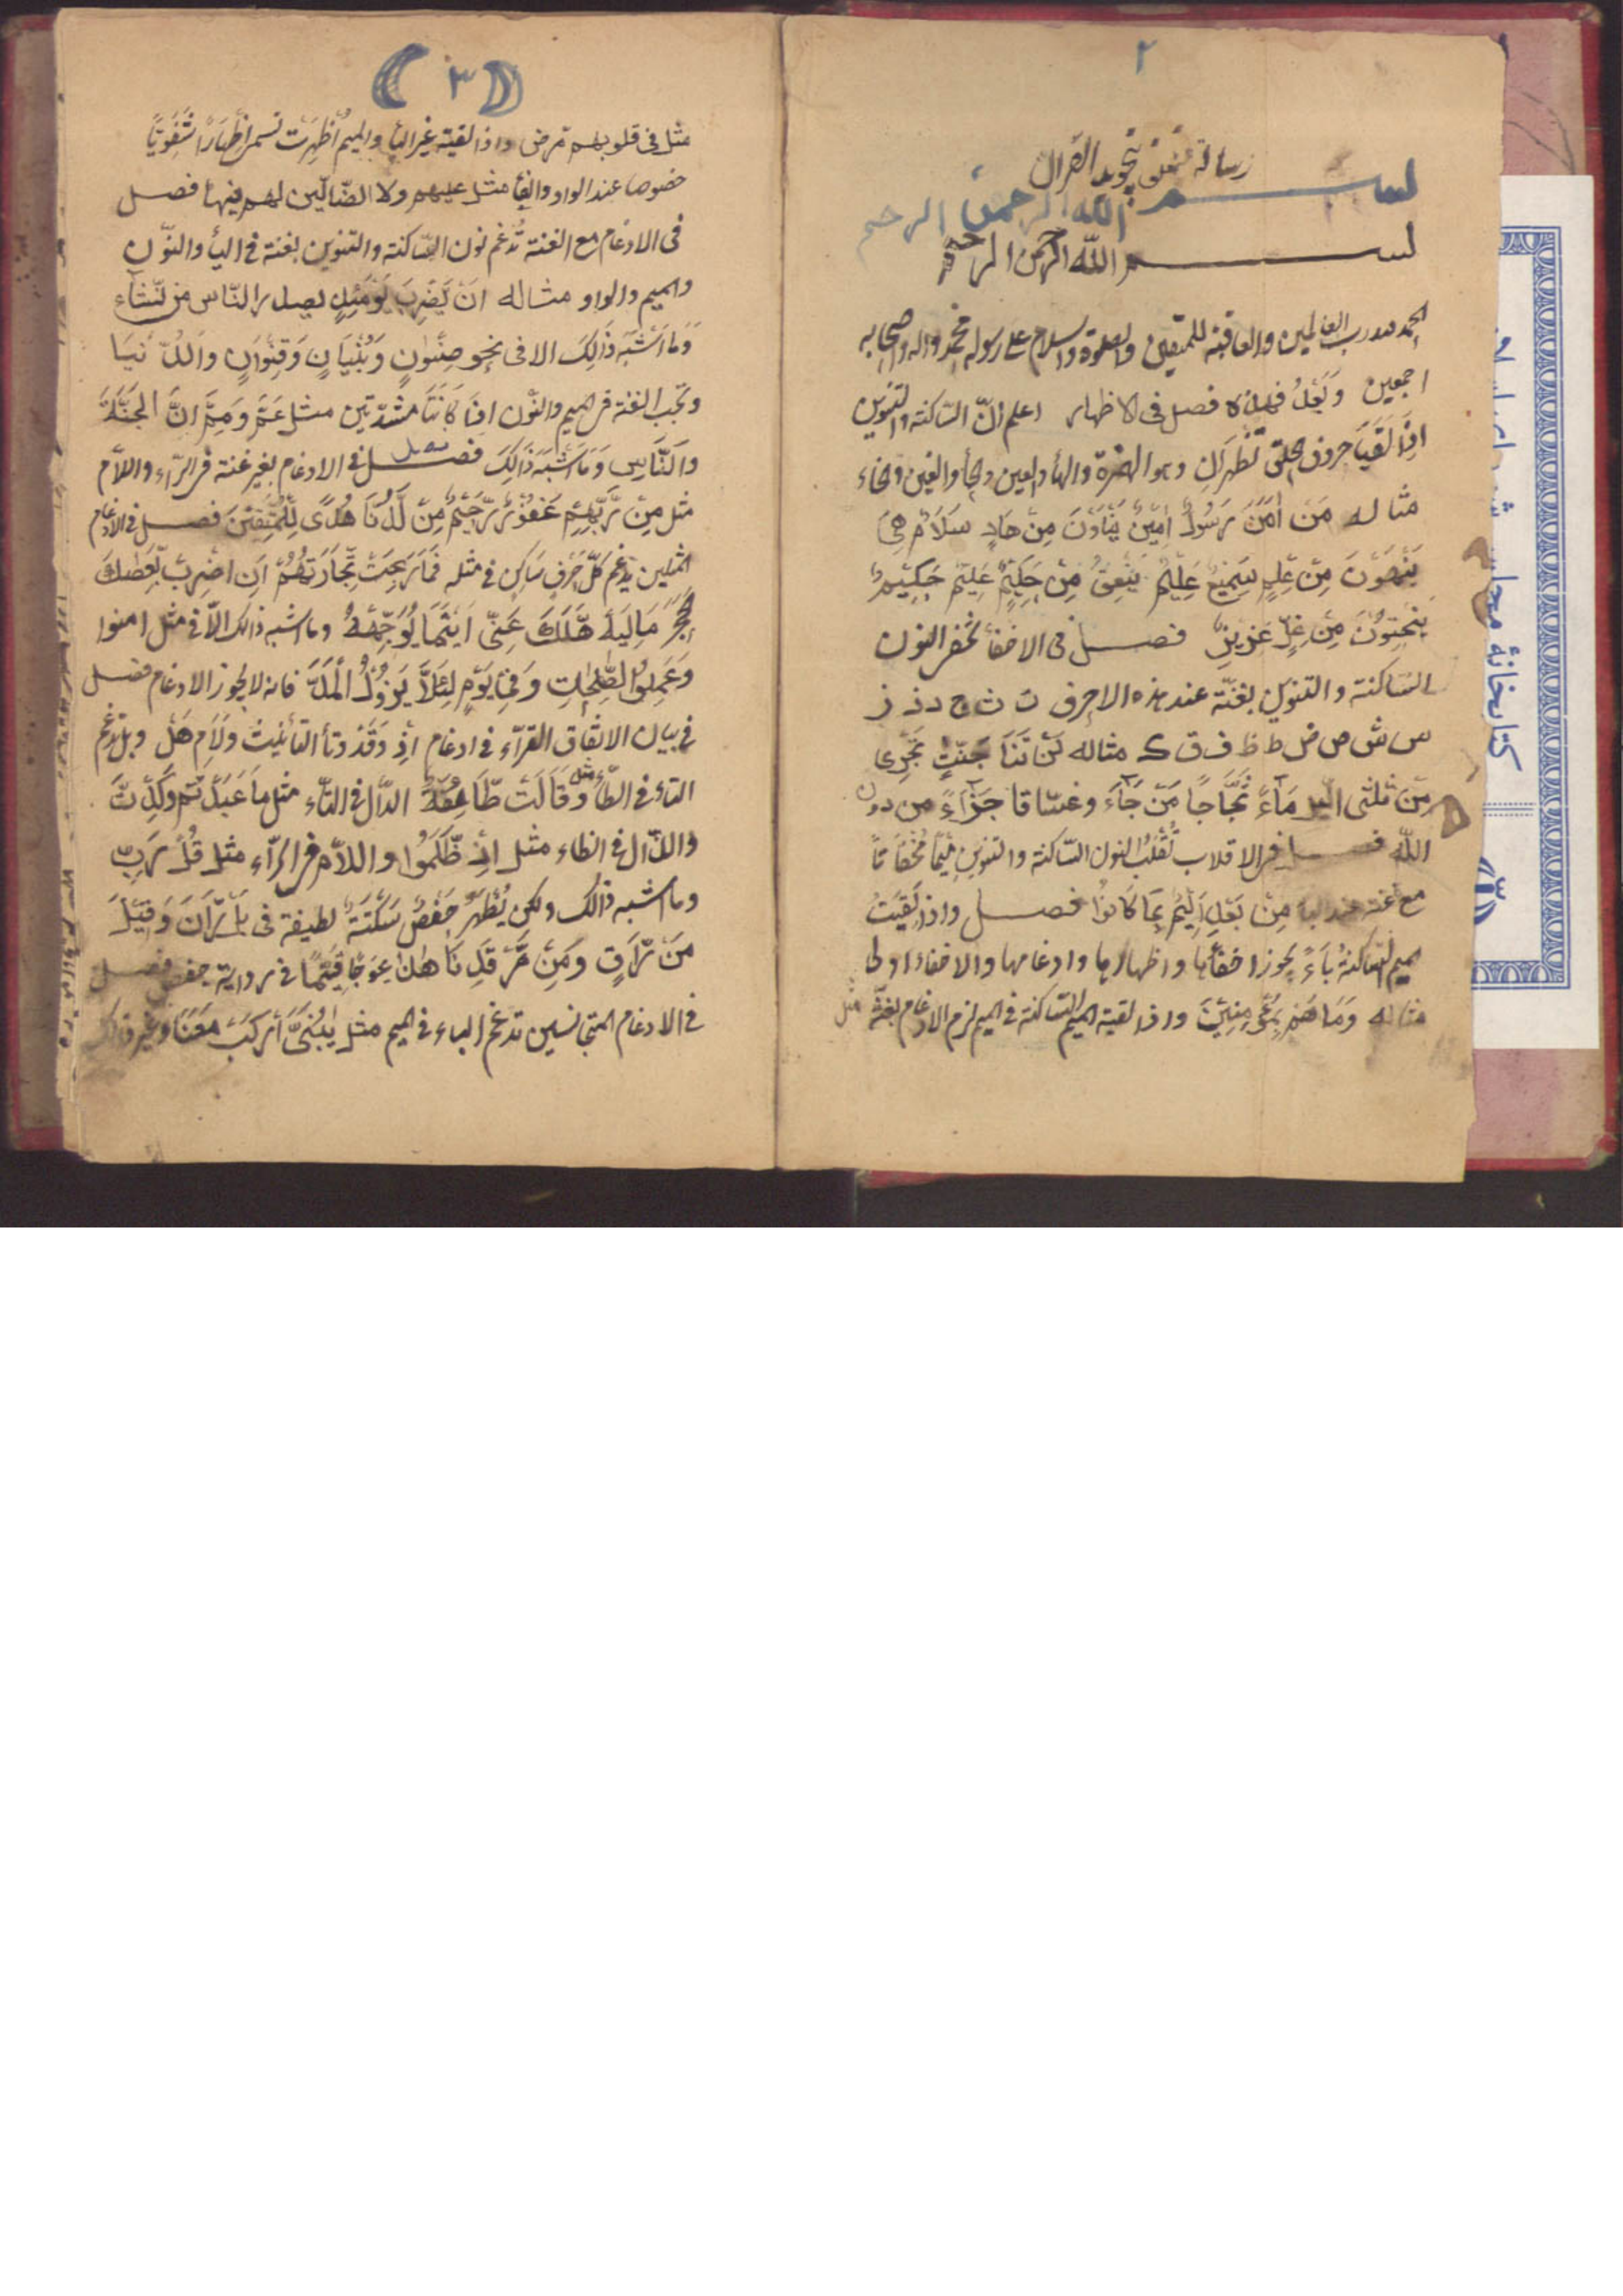 ٢
رسالة متعلق بتجويد القرآن
بسم الله الرحمن الرحيم
بسم الله الرحمن الرحيم
الحمد لله رب العالمين والعاقبة للمتقين والصلوة والسلام على رسوله محمد واله واصحابه
اجمعين وبعد فهذه فصل في الاظهار اعلم انّ الساكنة والتنوين
اذا لقيا حروف الحلق تظهران وهو الهمزة والهاء والعين والحاء والغين والخاء
مثاله من اٰمن رسول امين ينأون من هاد سلام هي
ينهون من علم سميع عليم ينعق من حكيم عليم حكيم
ينحتون من غل عزيز فصل في الاخفأ تخفى النون
الساكنة والتنوين بغنّة عند هذه الاحرف ت ث ج د ذ ز
س ش ص ض ط ظ ف ق ك مثاله لن تنا جنّت تجري
من ثلثي اليل مآء ثجّاجا من جآء وغسّاقا جزآء من دون
الله فصل في الاقلاب تقلب النون الساكنة والتنوين ميما مخفاتا
مع غنة عند البا من بعد اليم بما كانوا فصل واذا لقيت
ميم الساكنة باء يجوز اخفأها واظهارها وادغامها والاخفاء اولى
مثاله وما هم بمؤمنين واذا لقية الميم الساكنة في الميم لزم الادغام بغنّة مثل
(٣)
مثل في قلوبهم مرض واذا لقية غير البأ والميم اُظهرت تسمى اظهارا شفويّا
خصوصا عند الواو والفأ مثل عليهم ولا الضّالّين لهم فيها فصل
في الادغام مع الغنة تُدغم نون السّاكنة والتنوين بغنة في اليأ والنّون
والميم والواو مثاله ان يّضرب يومئذ يصدر النّاس من نّشآء
وما اشبه ذالك الا في نحو صنوان وبنيان وقنوان والدّنيا
وتجب الغنة في الميم والنّون اذا كانتا مشدّدتين مثل عمّ وممّ انّ الجنّة
والنّاس وما اشبه ذالك فصل في الادغام بغير غنة في الرّاء واللّام
مثل من رّبّهم غفور رّحيم من لّدنا هدًى للمتّقين فصل في الادغام
المثلين يدغم كلّ حرف ساكن في مثله فما ربحت تّجارتهم ان اضرب بّعصاك
الحجر ماليه هّلك عنّي اينما يوجّههّ وما اشبه ذالك الّا في مثل امنوا
وعملوا الصّلحات وفي يوم لئلّا يزول المدّ فانه لا يجوز الادغام فصل
في بيان الاتّفاق القرّاء في ادغام اذ وقد وتأ التأنيث ولام هل وبل تدغم
التاء في الطّاء مثل وقالت طّائفة الدّال في التّاء مثل ما عبدتّم وكدتّ
والذّال في الظاء مثل اذ ظّلموا واللّام في الرّاء مثل قل رّبّ
وما اشبه ذالك ولكن يُظهر حفص سكتة لطيفة في بل رّان وقيل
من رّاق ومن مّرقدنا هذا عوجا قيّما في رواية حفص فصل
في الادغام المتجانسين تدغم الباء في الميم مثل يٰبنيّ اركب مّعنا وغير ذالك